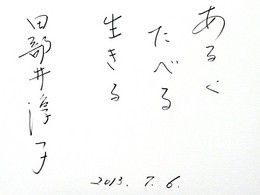 あるく
たべる
生きる
田部井淳子
2013. 7. 6.